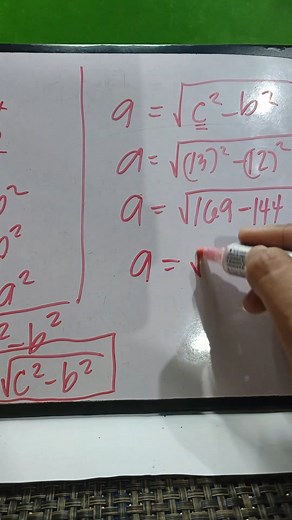 a = √c² - b²
a = √(13)² - (12)²
a = √169 - 144
a = √
b²
b²
a²
² - b²
√c² - b²